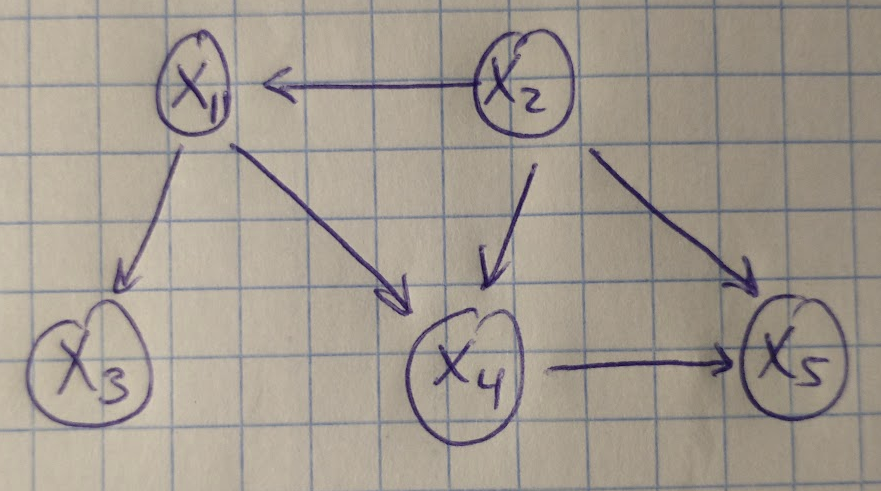 X1 X2
X3 X4 X5